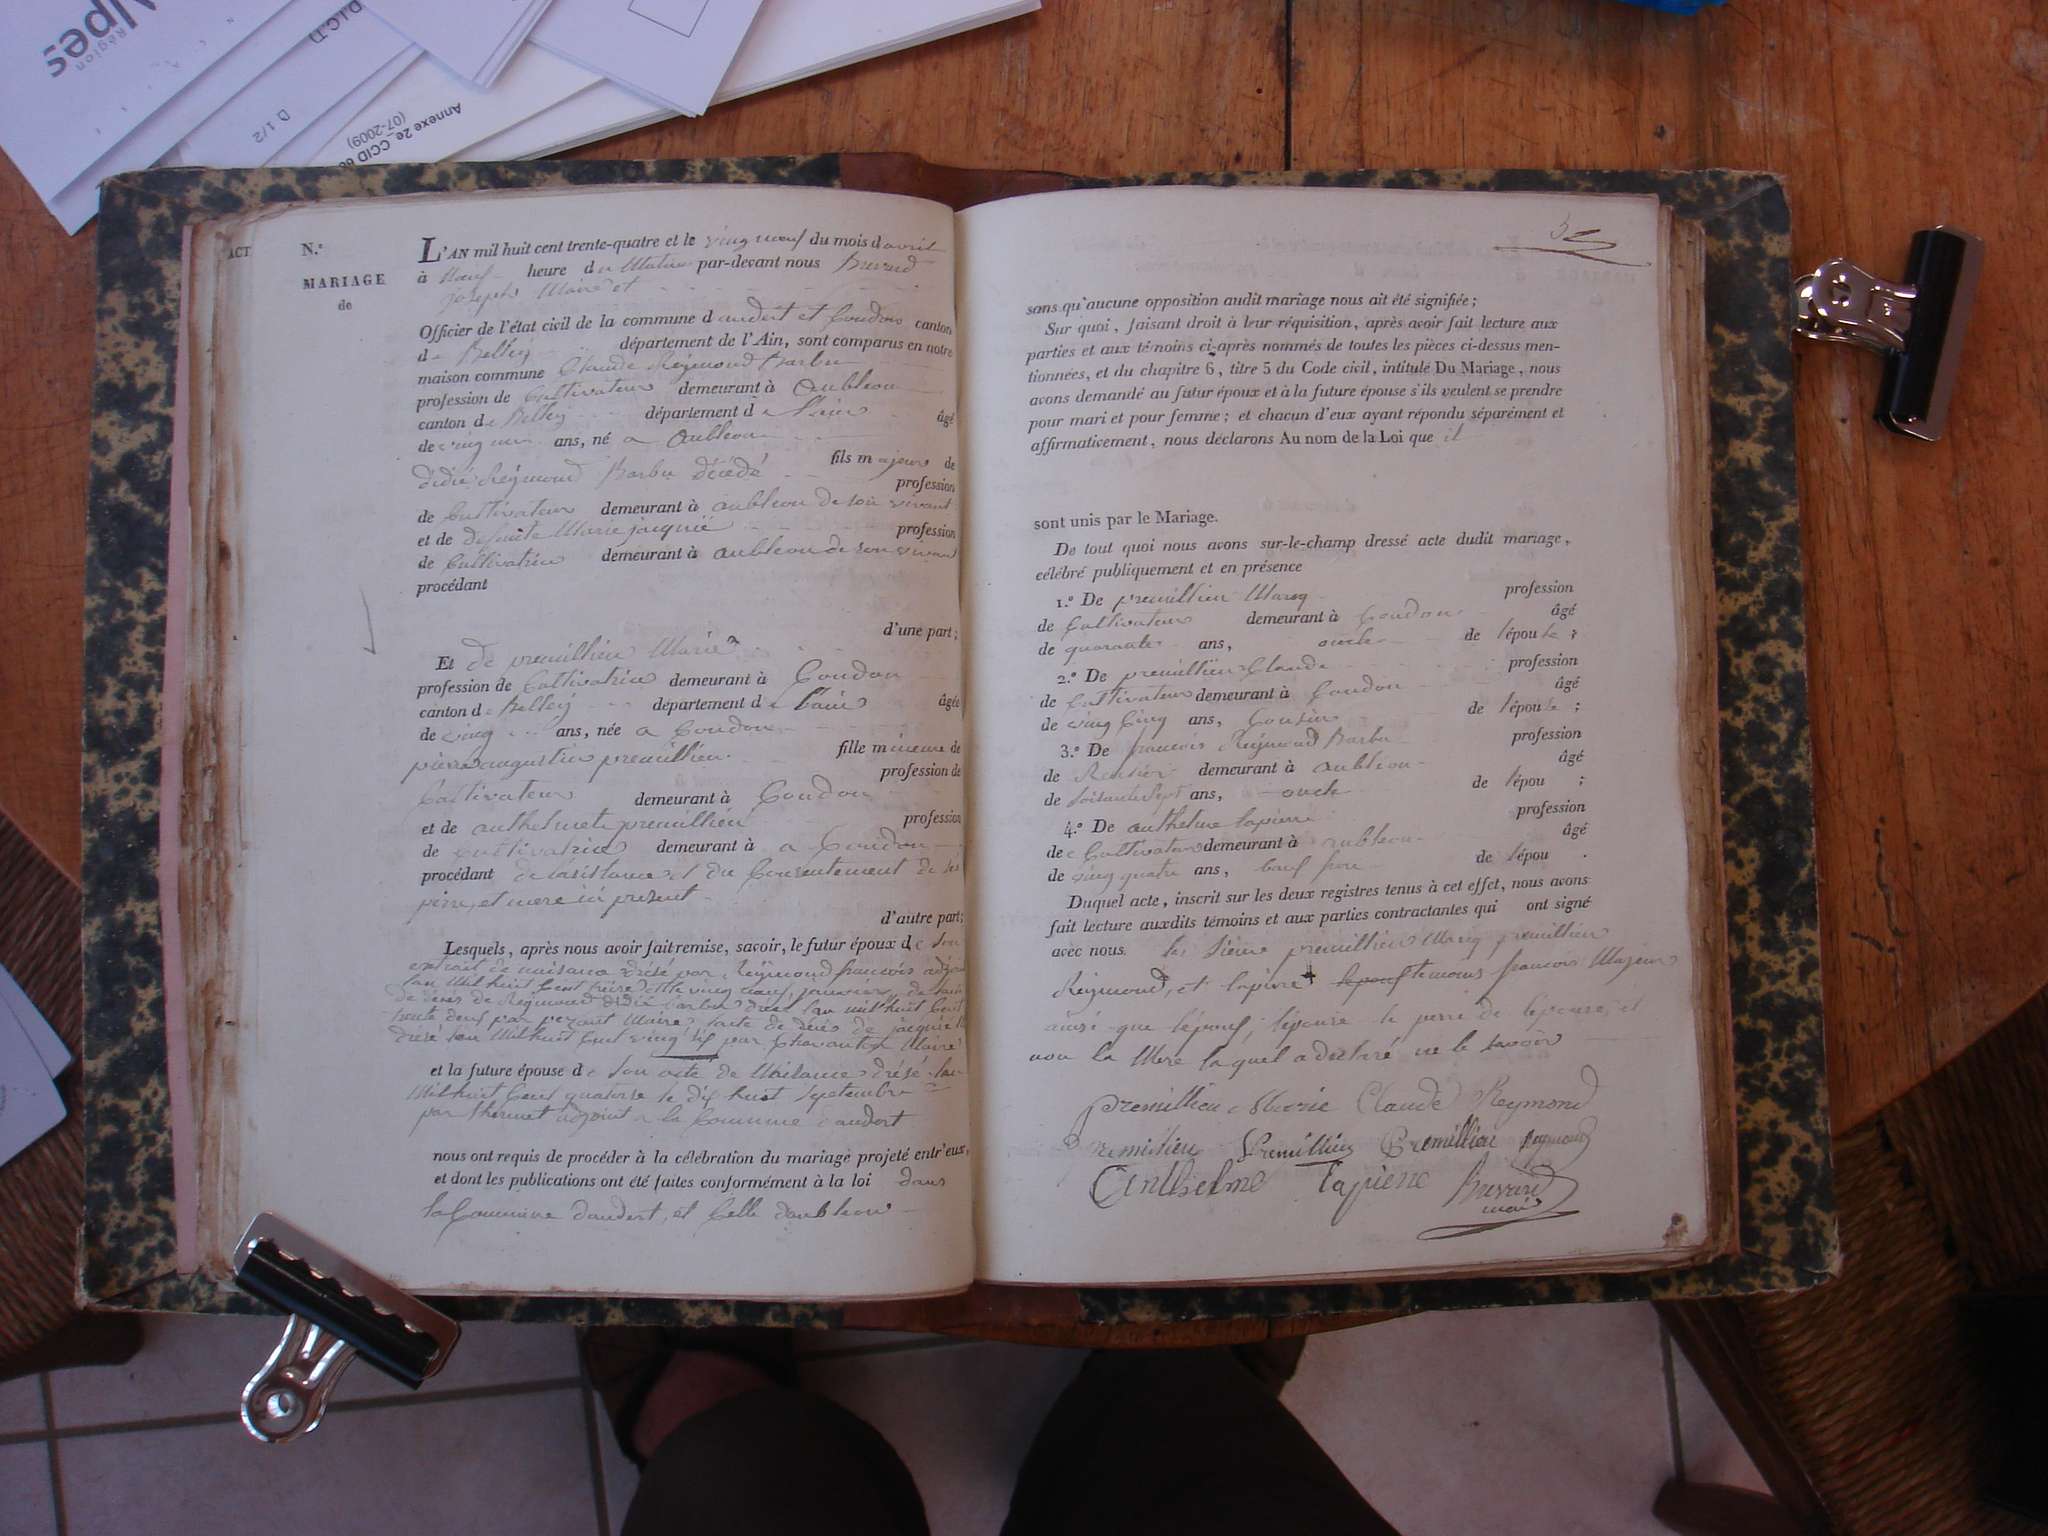 Région
Alpes
D.I.C.T
D 1/2
Annexe 2e_CCID
(07-2009)
ACT
N.º
MARIAGE
de
L'AN mil huit cent trente-quatre et le vingt neuf du mois d avril
à Neuf heure du Matin par-devant nous Brevard
joseph Maire et
Officier de l'état civil de la commune d andert et Coudon canton
de Belley département de l'Ain, sont comparus en notre
maison commune Claude Reymond Barbu
profession de Cultivateur demeurant à aubleou
canton de Belley département de l'ain âgé
de ving un ans, né a aubleou
fils majeur de
didié Reymond Barbu décédé
profession
de Cultivateur demeurant à aubleou de son vivant
et de defunte Marie jacquié profession
de Cultivatrice demeurant à aubleou de son vivant
procédant
d'une part;
Et de premillieu Marie
profession de Cultivatrice demeurant à Coudon
canton de Belley département de l'ain âgée
de ving ans, née a Coudon
fille mineure de
pierre augustin premillieu
profession de
Cultivateur demeurant à Coudon
et de anthelmete premillieu profession
de Cultivatrice demeurant à a Coudon
procédant de lasistance et du Consentement de ses
perre, et mere ici present
d'autre part;
Lesquels, après nous avoir fait remise, savoir, le futur époux de son
extrait de naisance drésé par Reymond francois adjoin
lan Mil huit Cent treize et le ving neuf janvier, de lacte
de décés de Reymond didié barbu drésé lan mil huit Cent
trente deux par Maire, lacte de décés de jacquié
drésé lan Mil huit Cent ving six par Maire
et la future épouse de son acte de Naisance drésé lan
Mil huit Cent quatorse le dix huit septembre
par thermet adjoint a la Commune dandert
nous ont requis de procéder à la célébration du mariage projeté entr'eux,
et dont les publications ont été faites conformément à la loi dans
la Commune dandert, et Celle daubleou
sans qu'aucune opposition audit mariage nous ait été signifiée;
Sur quoi, faisant droit à leur réquisition, après avoir fait lecture aux
parties et aux témoins ci-après nommés de toutes les pièces ci-dessus men-
tionnées, et du chapitre 6, titre 5 du Code civil, intitulé Du Mariage, nous
avons demandé au futur époux et à la future épouse s'ils veulent se prendre
pour mari et pour femme; et chacun d'eux ayant répondu séparément et
affirmativement, nous déclarons Au nom de la Loi que il
sont unis par le Mariage.
De tout quoi nous avons sur-le-champ dressé acte dudit mariage,
célébré publiquement et en présence
1.º De premillieu Marcq profession
de Cultivateur demeurant à Coudon âgé
de quarante ans, oncle de l'épouse;
2.º De premillieu Claude profession
de Cultivateur demeurant à Coudon âgé
de ving Cinq ans, Cousin de l'épouse;
3.º De francois Reymond Barbu profession
de Rentier demeurant à aubleou âgé
de soisante sept ans, oncle de l'épou ;
4.º De anthelme lapierre profession
de Cultivateur demeurant à aubleou âgé
de ving quatre ans, bauf frere de l'épou .
Duquel acte, inscrit sur les deux registres tenus à cet effet, nous avons
fait lecture auxdits témoins et aux parties contractantes qui ont signé
avec nous. les sieurs premillieu Marcq premillieu
Reymond, et lapiere temoins francois Majeur
ainsi que lépouf, lépouse le perre de lépouse, et
non la Mere laquel a déclaré ne le savoir
premillieu Marie Claude Reymond
Premilieu Premillieu Premillieu Reymond
Anthelme Lapierre Brevard
maire